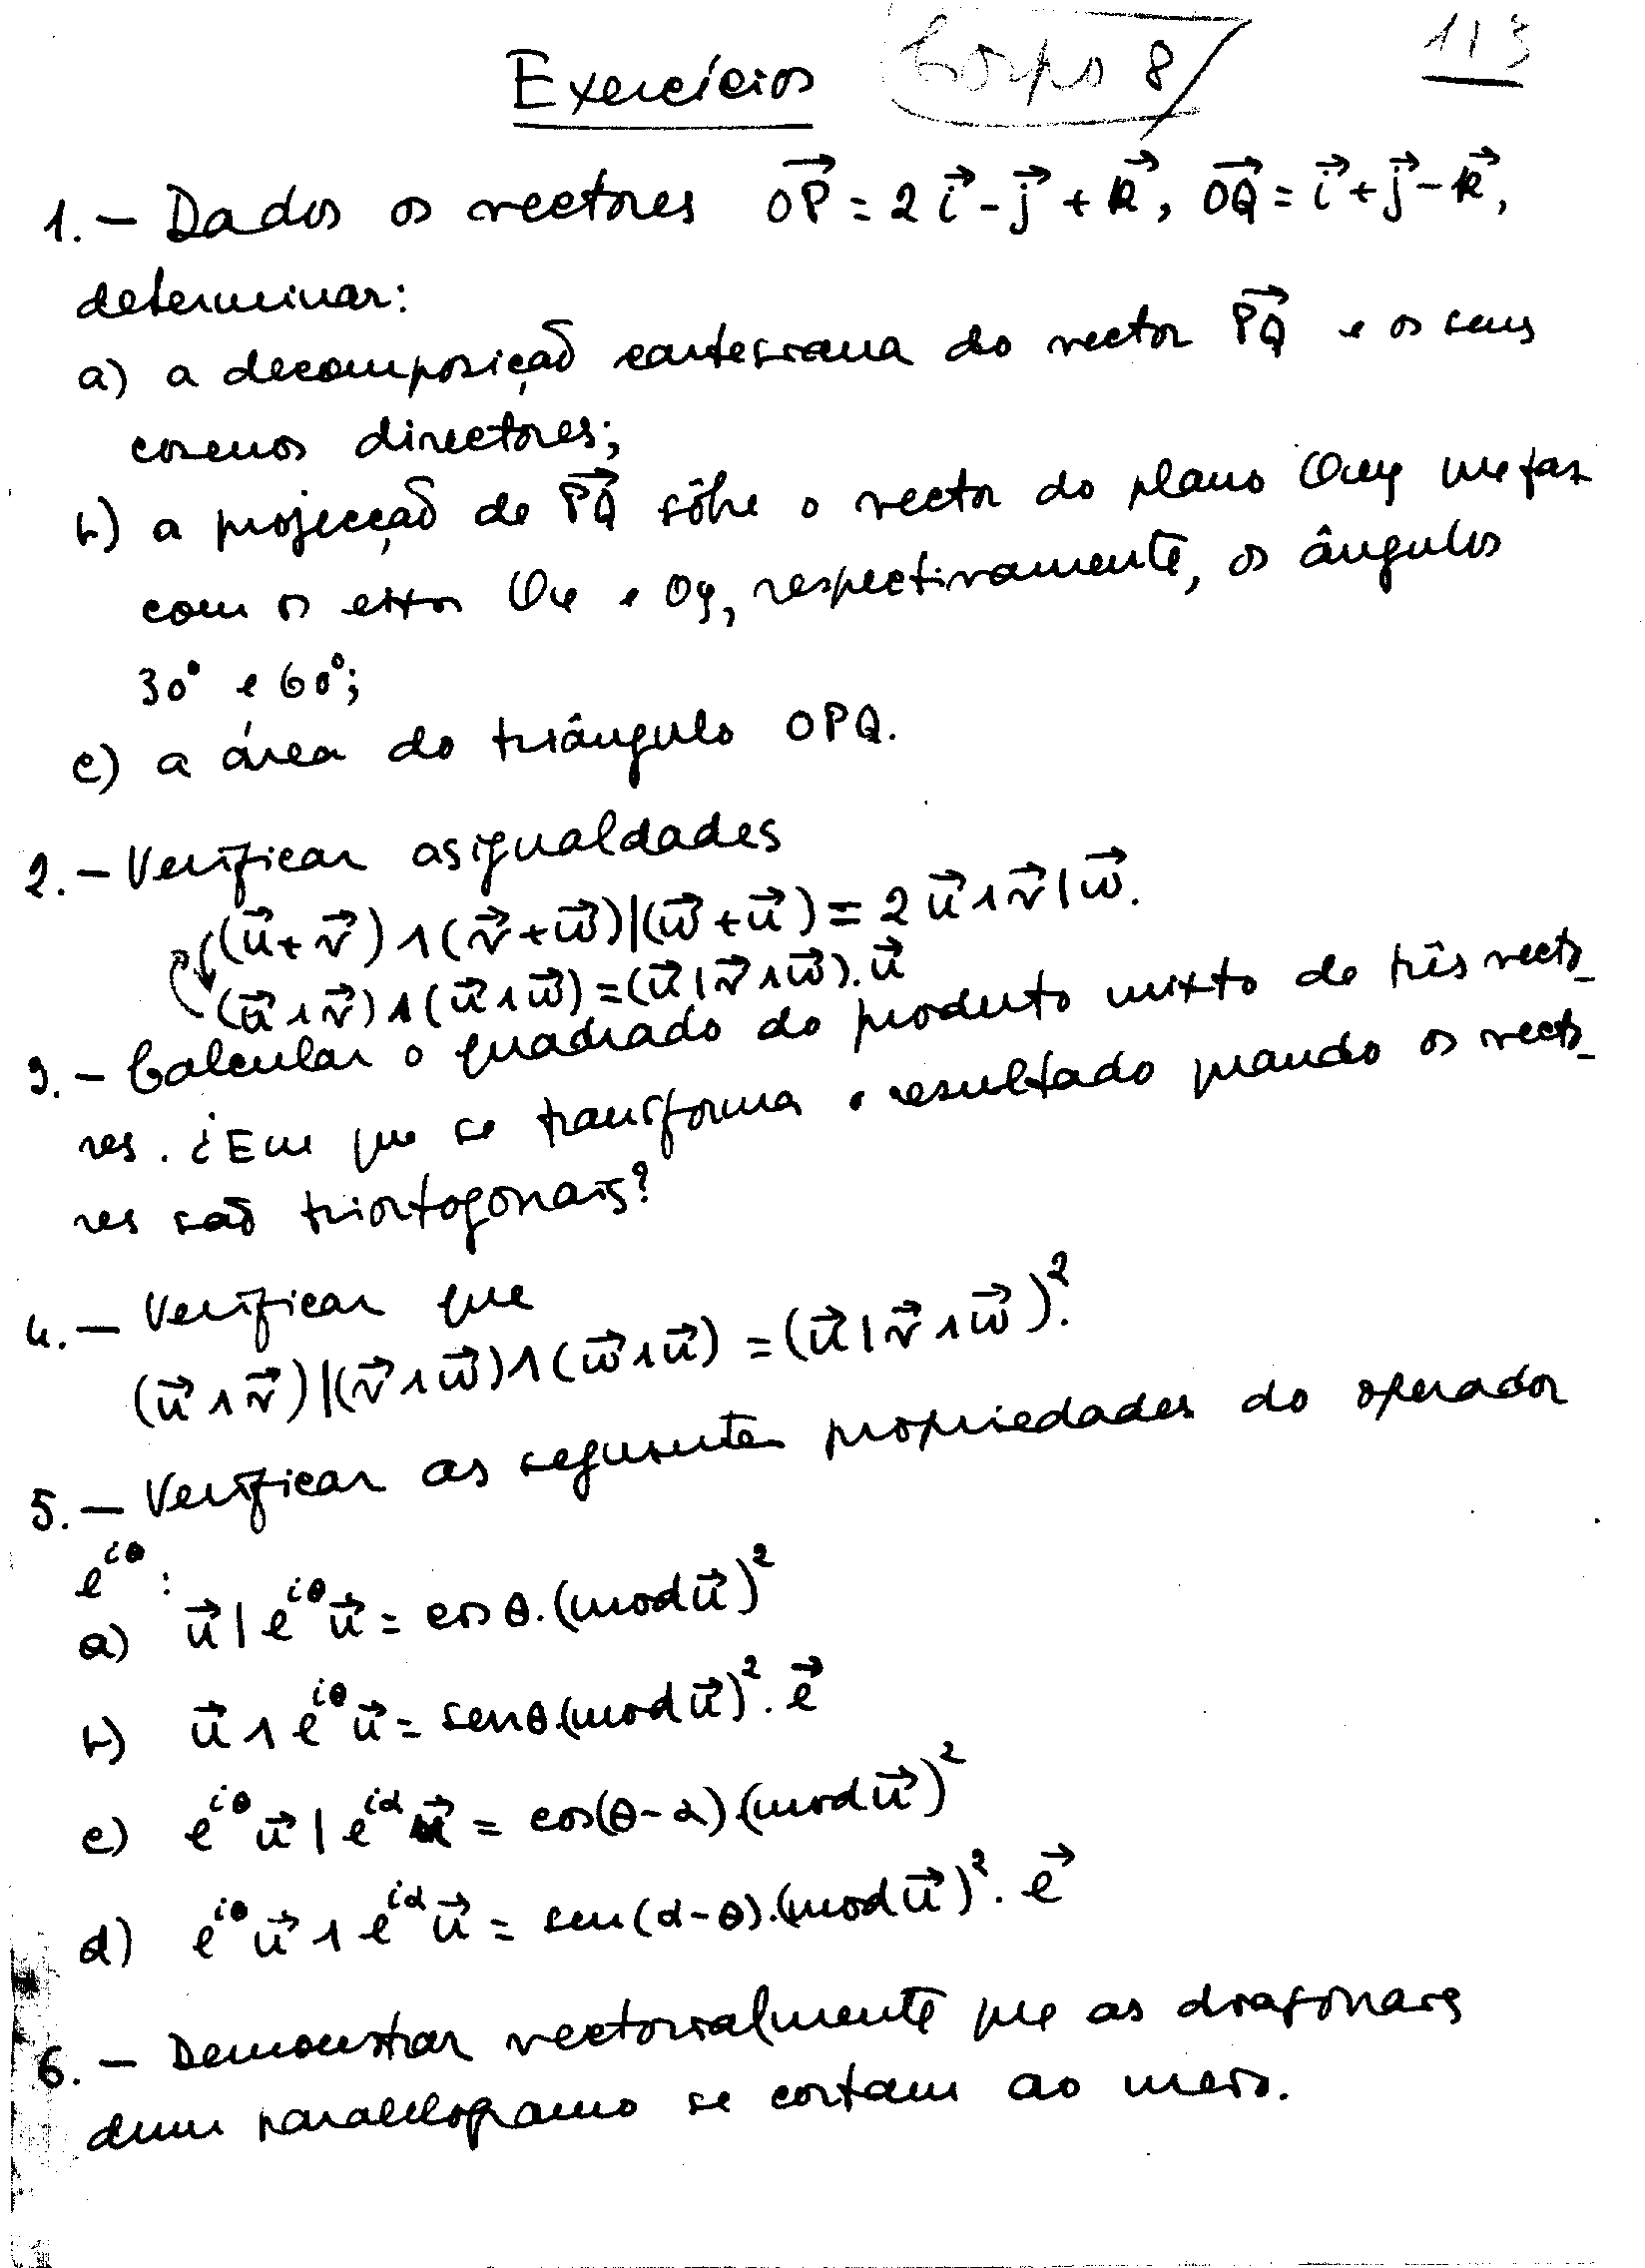 Exercícios Corpo 8 113
1. — Dados os vectores OP⃗ = 2 i⃗ - j⃗ + k⃗, OQ⃗ = i⃗ + j⃗ - k⃗,
determinar:
a) a decomposição cartesiana do vector PQ⃗ e os seus
cosenos directores;
b) a projecção de PQ⃗ sôbre o vector do plano Oxy que faz
com os eixos Ox e Oy, respectivamente, os ângulos
30° e 60°;
c) a área do triângulo OPQ.
2. — Verificar as igualdades
(u⃗ + v⃗) ∧ (v⃗ + w⃗) | (w⃗ + u⃗) = 2 u⃗ ∧ v⃗ | w⃗.
(u⃗ ∧ v⃗) ∧ (u⃗ ∧ w⃗) = (u⃗ | v⃗ ∧ w⃗). u⃗
3. — Calcular o quadrado do produto mixto de três vecto-
res. ¿Em que se transforma o resultado quando os vecto-
res são triortogonais?
4. — Verificar que
(u⃗ ∧ v⃗) | (v⃗ ∧ w⃗) ∧ (w⃗ ∧ u⃗) = (u⃗ | v⃗ ∧ w⃗)².
5. — Verificar as seguintes propriedades do operador
e^{iθ} :
a) u⃗ | e^{iθ} u⃗ = cos θ. (mod u⃗)²
b) u⃗ ∧ e^{iθ} u⃗ = sen θ. (mod u⃗)². e⃗
c) e^{iθ} u⃗ | e^{iα} u⃗ = cos(θ - α). (mod u⃗)²
d) e^{iθ} u⃗ ∧ e^{iα} u⃗ = sen(α - θ). (mod u⃗)². e⃗
6. — Demonstrar vectorialmente que as diagonais
dum paralelogramo se cortam ao meio.